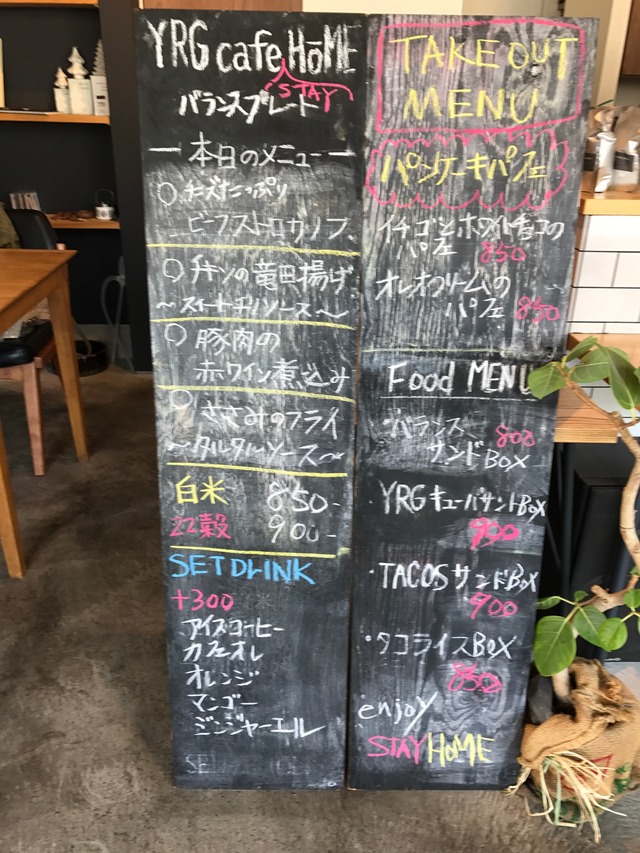 YRG cafe HōME
STAY
バランスプレート
ー本日のメニューー
○チーズたっぷり
ビーフストロガノフ
○チキンの竜田揚げ
〜スイートチリソース〜
○豚肉の
赤ワイン煮込み
○ささみのフライ
〜タルタルソース〜
白米 850-
22穀 900-
SET DLINK
+300
アイスコーヒー
カフェオレ
オレンジ
マンゴー
ジンジャーエール
TAKE OUT
MENU
パンケーキパフェ
イチゴとホワイトチョコの
パフェ 850
オレオクリームの
パフェ 850
Food MENU
・バランス 800
サンドBOX
YRG キューバサンドBOX
900
・TACOSサンドBOX
900
・タコライスBOX
850
enjoy
STAY HOME